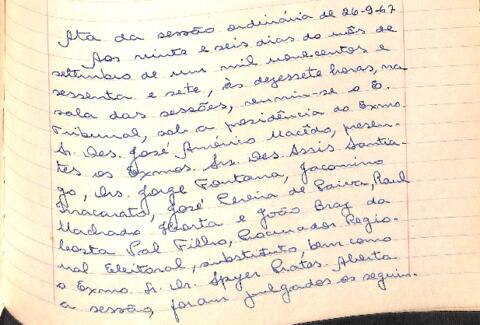 Ata da sessão ordinária de 26-9-67
Aos vinte e seis dias do mês de
setembro de um mil novecentos e
sessenta e sete, às dezessete horas, na
sala das sessões, reuniu-se o E.
Tribunal, sob a presidência do Exmo.
Sr. Des. José Américo Macêdo, presen-
tes os Exmos. Srs. Des. Assis Santia-
go, Drs. Jorge Fontana, Jacomino
Inacarato, José Pereira de Paiva, Raul
Machado Horta e João Braz da
Costa Val Filho, Procurador Regio-
nal Eleitoral, substituto, bem como
o Exmo. Sr. Dr. Spyer Prates. Aberta
a sessão, foram julgados os seguin-